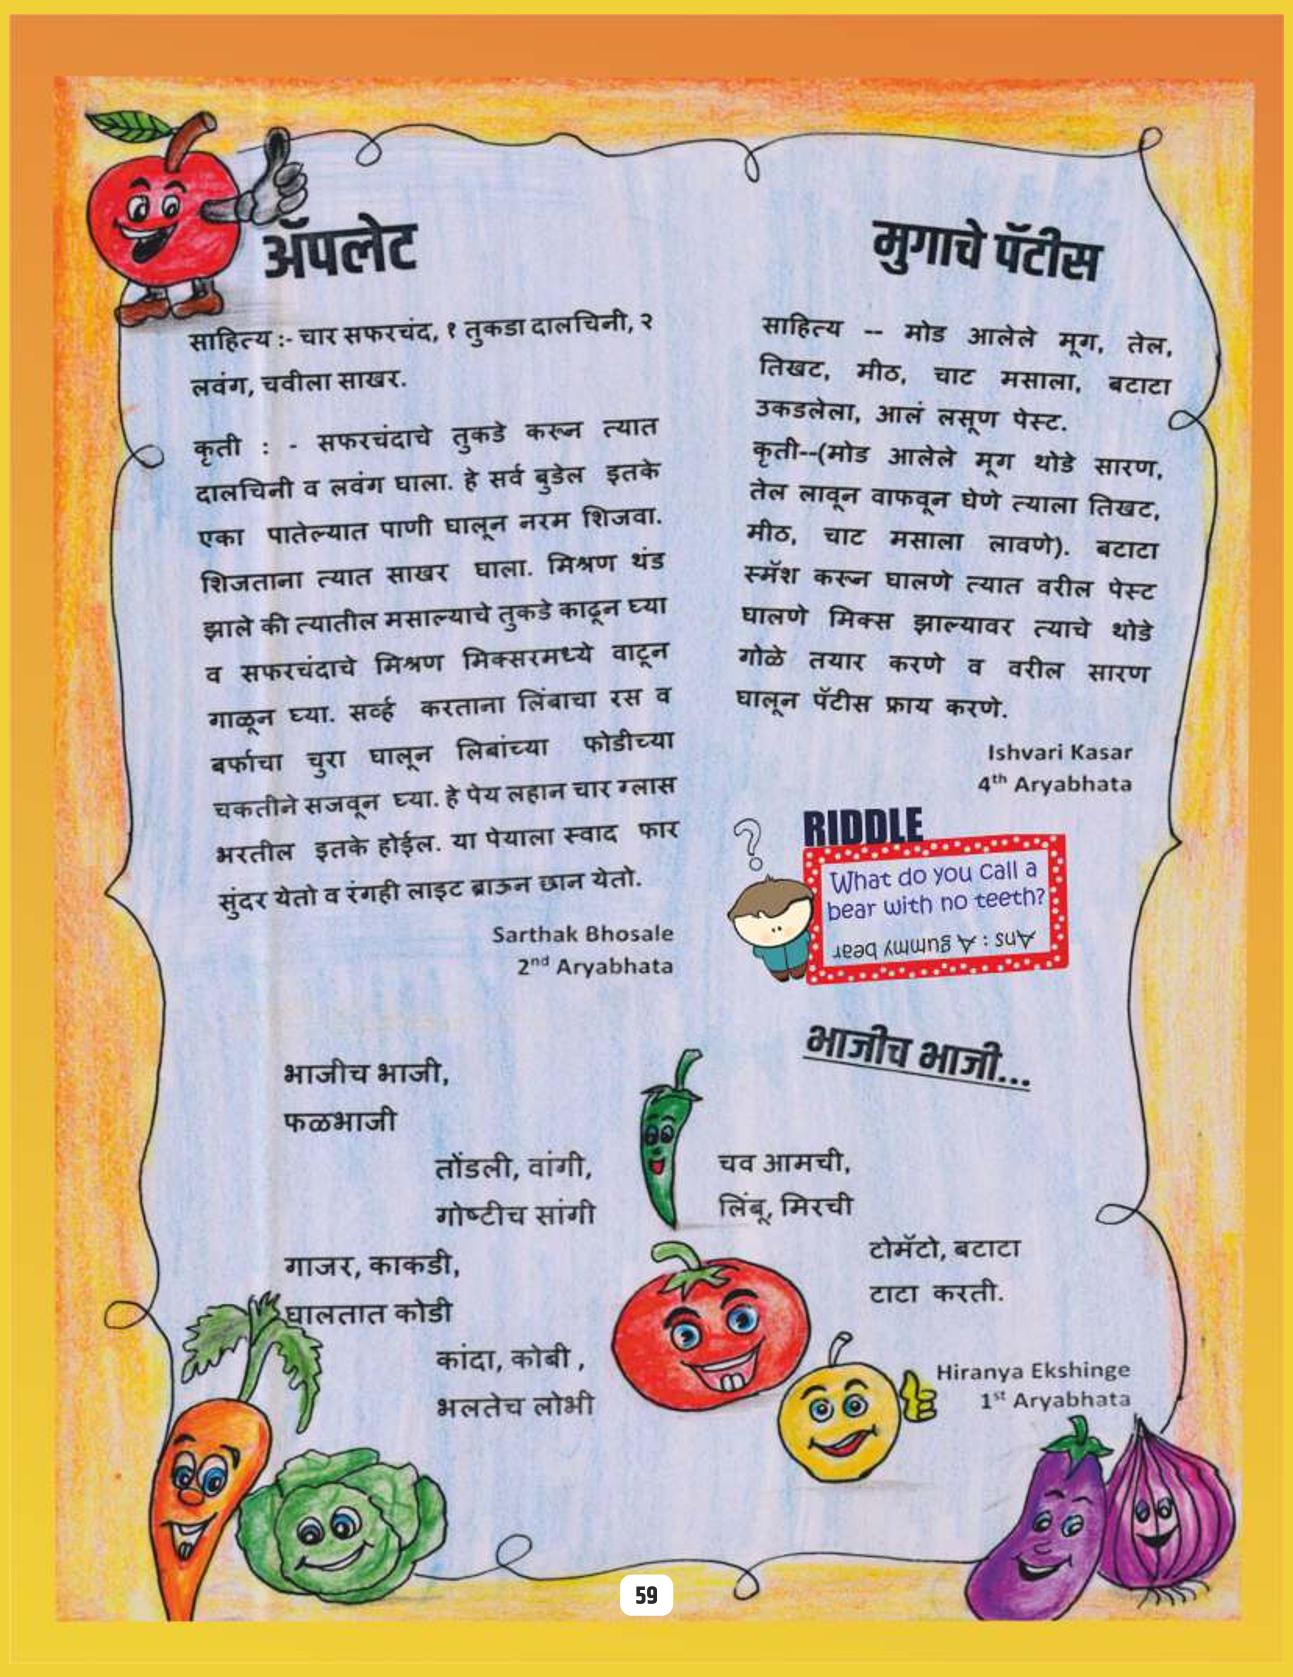 ॲपलेट
साहित्य :- चार सफरचंद, १ तुकडा दालचिनी, २
लवंग, चवीला साखर.
कृती : - सफरचंदाचे तुकडे करून त्यात
दालचिनी व लवंग घाला. हे सर्व बुडेल इतके
एका पातेल्यात पाणी घालून नरम शिजवा.
शिजताना त्यात साखर घाला. मिश्रण थंड
झाले की त्यातील मसाल्याचे तुकडे काढून घ्या
व सफरचंदाचे मिश्रण मिक्सरमध्ये वाटून
गाळून घ्या. सर्व्ह करताना लिंबाचा रस व
बर्फाचा चुरा घालून लिबांच्या फोडीच्या
चकतीने सजवून घ्या. हे पेय लहान चार ग्लास
भरतील इतके होईल. या पेयाला स्वाद फार
सुंदर येतो व रंगही लाइट ब्राऊन छान येतो.
Sarthak Bhosale
2nd Aryabhata
मुगाचे पॅटीस
साहित्य -- मोड आलेले मूग, तेल,
तिखट, मीठ, चाट मसाला, बटाटा
उकडलेला, आलं लसूण पेस्ट.
कृती--(मोड आलेले मूग थोडे सारण,
तेल लावून वाफवून घेणे त्याला तिखट,
मीठ, चाट मसाला लावणे). बटाटा
स्मॅश करून घालणे त्यात वरील पेस्ट
घालणे मिक्स झाल्यावर त्याचे थोडे
गोळे तयार करणे व वरील सारण
घालून पॅटीस फ्राय करणे.
Ishvari Kasar
4th Aryabhata
RIDDLE
What do you call a
bear with no teeth?
Ans : A gummy bear
भाजीच भाजी...
भाजीच भाजी,
फळभाजी
तोंडली, वांगी,
गोष्टीच सांगी
गाजर, काकडी,
घालतात कोडी
कांदा, कोबी ,
भलतेच लोभी
चव आमची,
लिंबू, मिरची
टोमॅटो, बटाटा
टाटा करती.
Hiranya Ekshinge
1st Aryabhata
59